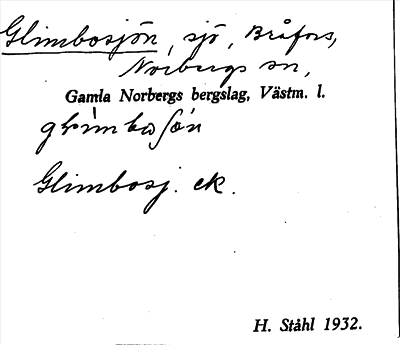 Glimbosjön, sjö, Bråfors,
Norbergs sn,
Gamla Norbergs bergslag, Västm. l.
Glimbosj. ek.
H. Ståhl 1932.